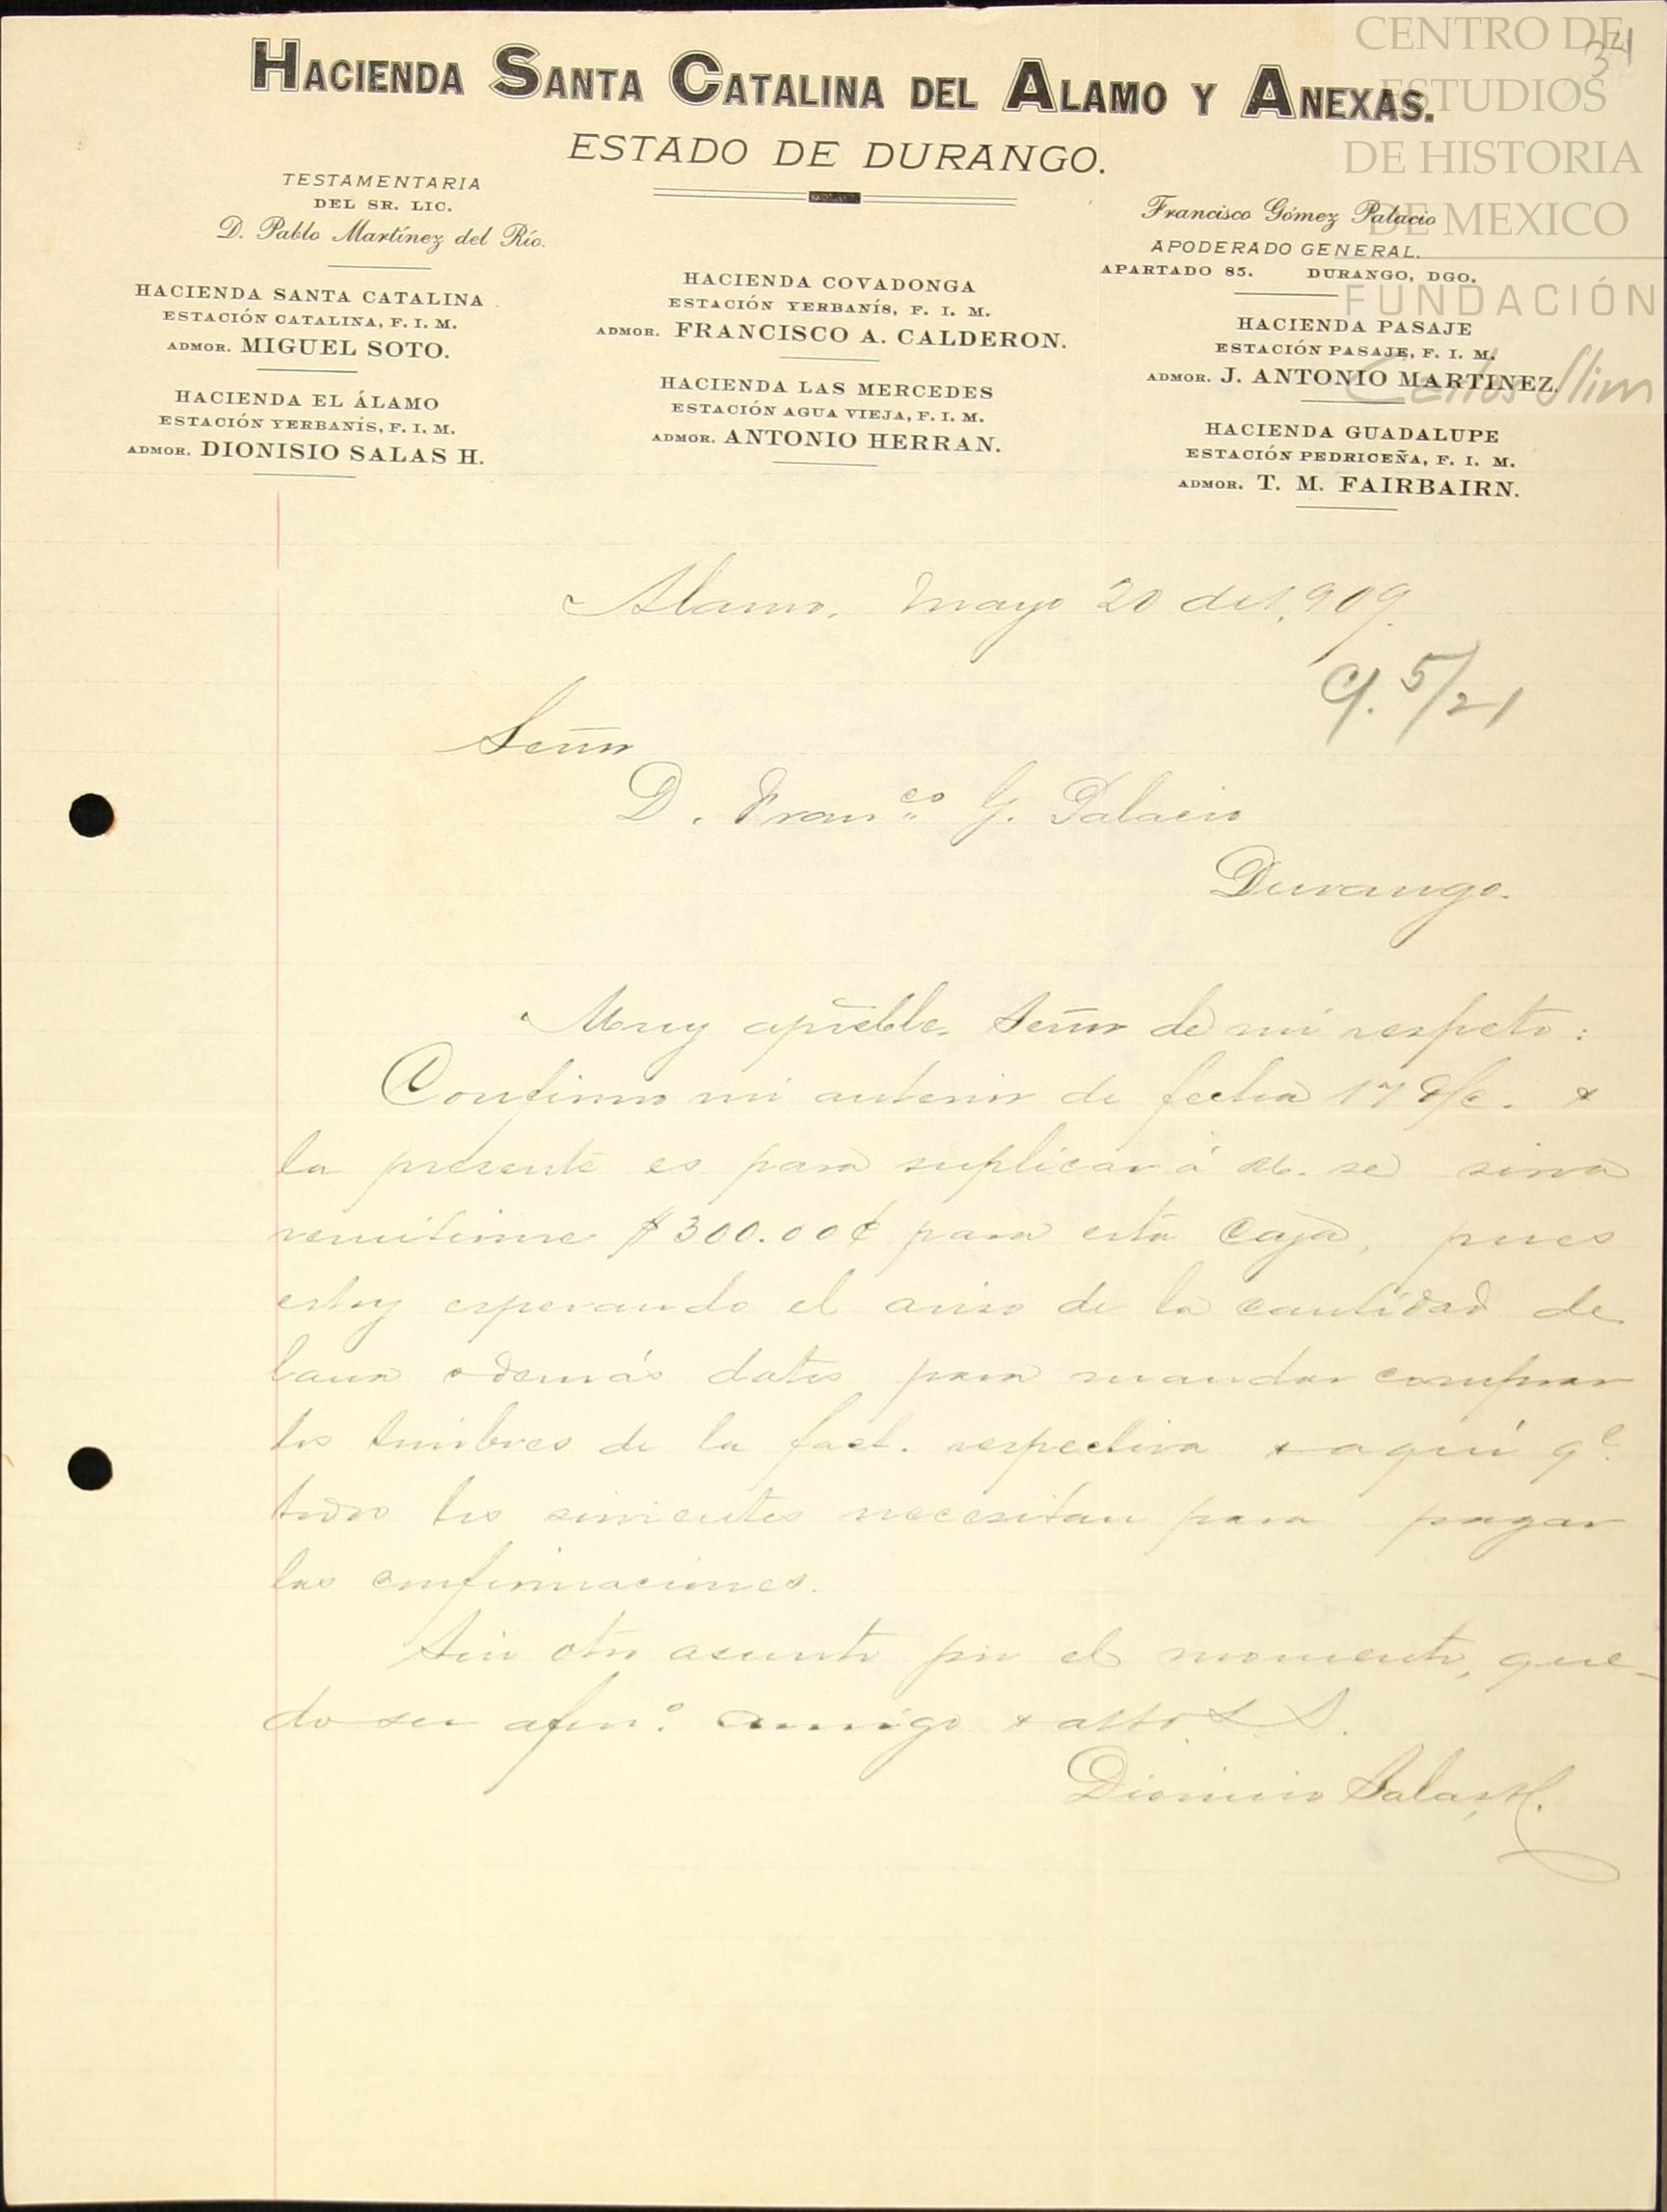 34
CENTRO DE
ESTUDIOS
DE HISTORIA
DE MEXICO
FUNDACIÓN
Carlos Slim
HACIENDA SANTA CATALINA DEL ALAMO Y ANEXAS.
ESTADO DE DURANGO.
TESTAMENTARIA
DEL SR. LIC.
D. Pablo Martínez del Río.
HACIENDA SANTA CATALINA
ESTACIÓN CATALINA, F. I. M.
ADMOR. MIGUEL SOTO.
HACIENDA EL ÁLAMO
ESTACIÓN YERBANÍS, F. I. M.
ADMOR. DIONISIO SALAS H.
HACIENDA COVADONGA
ESTACIÓN YERBANÍS, F. I. M.
ADMOR. FRANCISCO A. CALDERON.
HACIENDA LAS MERCEDES
ESTACIÓN AGUA VIEJA, F. I. M.
ADMOR. ANTONIO HERRAN.
Francisco Gómez Palacio
APODERADO GENERAL.
APARTADO 85. DURANGO, DGO.
HACIENDA PASAJE
ESTACIÓN PASAJE, F. I. M.
ADMOR. J. ANTONIO MARTINEZ.
HACIENDA GUADALUPE
ESTACIÓN PEDRICEÑA, F. I. M.
ADMOR. T. M. FAIRBAIRN.
Alamo, Mayo 20 de 1,909.
C/. 5/21
Señor
D. Franco G. Palacio
Durango.
Muy apreble. Señor de mi respeto:
Confirmo mi anterior de fecha 17 d/c. y
la presente es para suplicar á Ud. se sirva
remitirme $300.00¢ para esta Caja, pues
estoy esperando el aviso de la cantidad de
lana y demás datos para mandar comprar
los timbres de la fact. respectiva y aquí qe
todos los sirvientes necesitan para pagar
las confirmaciones.
Sin otro asunto por el momento, que-
do su afmo. amigo y atto. S. S.
Dionicio Salas H.